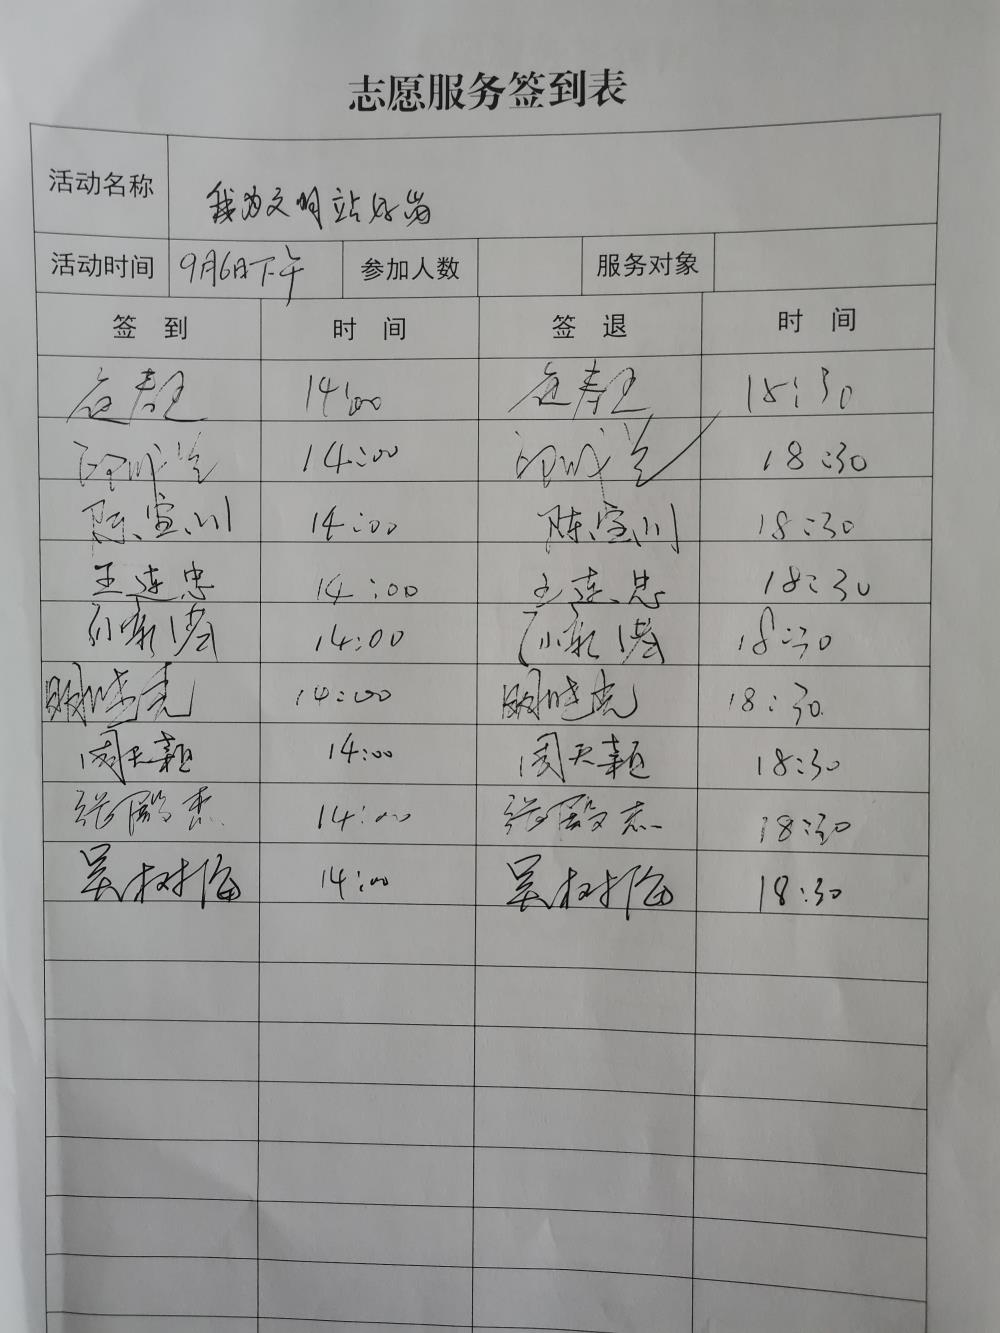 志愿服务签到表
活动名称 我为文明站好岗
活动时间 9月6日下午 参加人数 服务对象
签到 时间 签退 时间
14:00 18:30
14:00 18:30
陈宣川 14:00 陈宣川 18:30
王连忠 14:00 王连忠 18:30
14:00 18:30
明晓亮 14:00 明晓亮 18:30
周天颖 14:00 周天颖 18:30
张殿杰 14:00 张殿杰 18:30
吴树海 14:00 吴树海 18:30